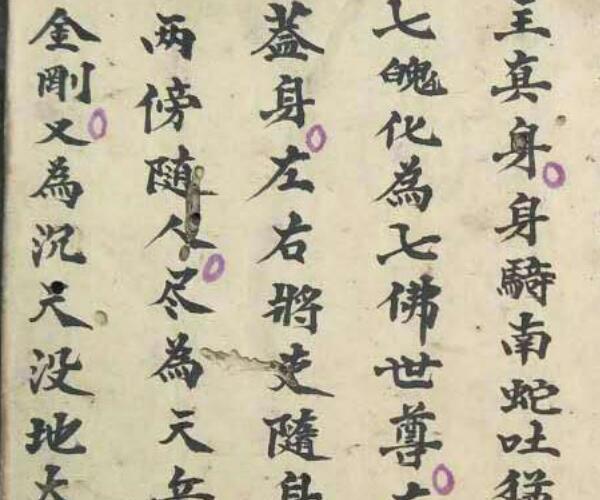 主真身身騎南蛇吐
七魄化為七佛世尊
蓋身左右將吏隨身
两傍随人尽為天兵
金剛又為沉天没地大